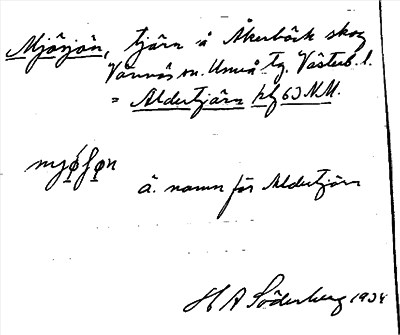 Mjösjön, tjärn å Åkerbäck skog
Vännäs sn. Umeå tg. Västerb. l.
= Aldertjärn kf 63 NM.
myøſøn
ä. namn för Aldertjärn
H A Söderberg 1934